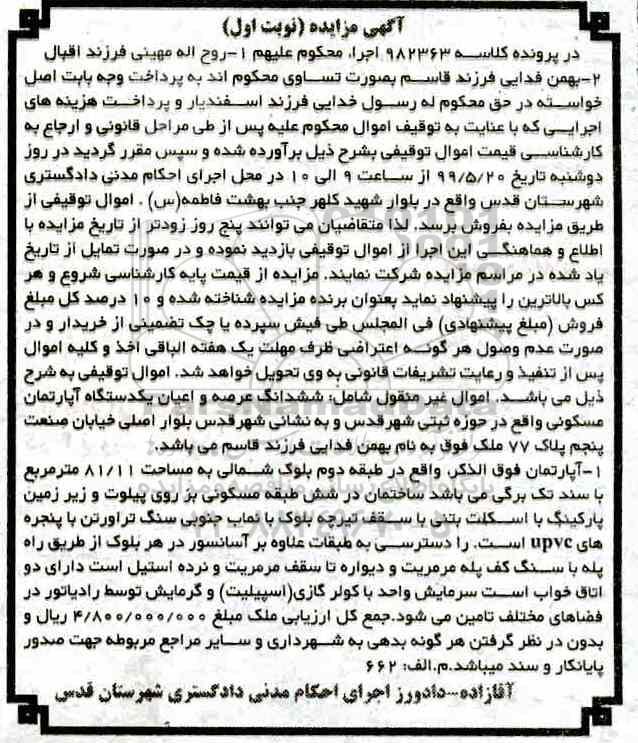 آگهی مزایده (نوبت اول)
در پرونده کلاسه ۹۸۲۳۶۳ اجرا، محکوم علیهم ۱-روح اله مهینی فرزند اقبال
۲-بهمن فدایی فرزند قاسم بصورت تساوی محکوم اند به پرداخت وجه بابت اصل
خواسته در حق محکوم له رسول خدایی فرزند اسفندیار و پرداخت هزینه های
اجرایی که با عنایت به توقیف اموال محکوم علیه پس از طی مراحل قانونی و ارجاع به
کارشناسی قیمت اموال توقیفی بشرح ذیل برآورده شده و سپس مقرر گردید در روز
دوشنبه تاریخ ۹۹/۵/۲۰ از ساعت ۹ الی ۱۰ در محل اجرای احکام مدنی دادگستری
شهرستان قدس واقع در بلوار شهید کلهر جنب بهشت فاطمه(س) . اموال توقیفی از
طریق مزایده بفروش برسد. لذا متقاضیان می توانند پنج روز زودتر از تاریخ مزایده با
اطلاع و هماهنگی این اجرا از اموال توقیفی بازدید نموده و در صورت تمایل از تاریخ
یاد شده در مراسم مزایده شرکت نمایند. مزایده از قیمت پایه کارشناسی شروع و هر
کس بالاترین را پیشنهاد نماید بعنوان برنده مزایده شناخته شده و ۱۰ درصد کل مبلغ
فروش (مبلغ پیشنهادی) فی المجلس طی فیش سپرده یا چک تضمینی از خریدار و در
صورت عدم وصول هر گونه اعتراضی ظرف مهلت یک هفته الباقی اخذ و کلیه اموال
پس از تنفیذ و رعایت تشریفات قانونی به وی تحویل خواهد شد. اموال توقیفی به شرح
ذیل می باشد. اموال غیر منقول شامل: ششدانگ عرصه و اعیان یکدستگاه آپارتمان
مسکونی واقع در حوزه ثبتی شهرقدس و به نشانی شهرقدس بلوار اصلی خیابان صنعت
پنجم پلاک ۷۷ ملک فوق به نام بهمن فدایی فرزند قاسم می باشد.
۱-آپارتمان فوق الذکر، واقع در طبقه دوم بلوک شمالی به مساحت ۸۱/۱۱ مترمربع
با سند تک برگی می باشد ساختمان در شش طبقه مسکونی بر روی پیلوت و زیر زمین
پارکینگ با اسکلت بتنی با سقف تیرچه بلوک با نماب جنوبی سنگ تراورتن با پنجره
های upvc است. را دسترسی به طبقات علاوه بر آسانسور در هر بلوک از طریق راه
پله با سنگ کف پله مرمریت و دیواره تا سقف مرمریت و نرده استیل است دارای دو
اتاق خواب است سرمایش واحد با کولر گازی(اسپیلیت) و گرمایش توسط رادیاتور در
فضاهای مختلف تامین می شود.جمع کل ارزیابی ملک مبلغ ۴/۸۰۰/۰۰۰/۰۰۰ ریال و
بدون در نظر گرفتن هر گونه بدهی به شهرداری و سایر مراجع مربوطه جهت صدور
پایانکار و سند میباشد.م.الف: ۶۶۲
آقازاده-دادورز اجرای احکام مدنی دادگستری شهرستان قدس
ParsNamadData